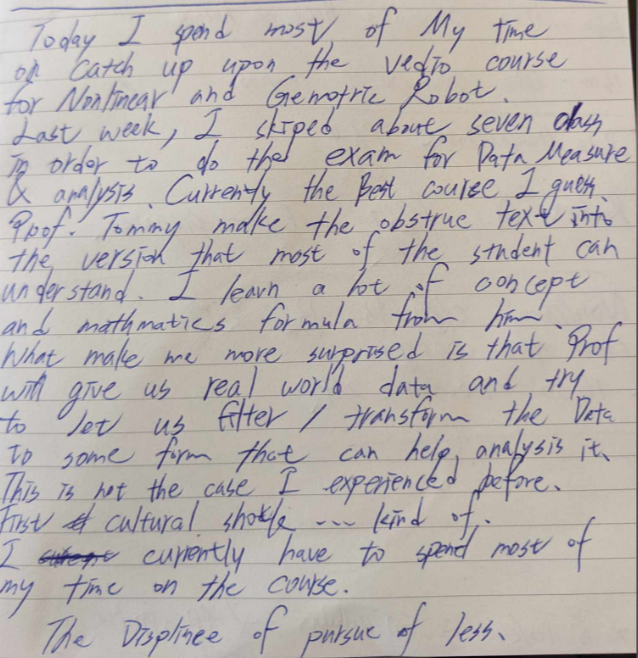 Today I spend most of My time
on Catch up upon the vedio course
for Nonlinear and Gemotric Robot.
Last week, I skiped about seven class
in order to do the exam for Data Measure
& analysis. Currently the Best course I guess.
Prof. Tommy make the obstrue text into
the version that most of the student can
understand. I learn a lot of concept
and mathmatics formula from him.
What make me more surprised is that Prof
will give us real world data and try
to let us filter / transform the Data
To some form that can help analysis it.
This is not the case I experienced before.
First cultural shock --- kind of.
I currently have to spend most of
my time on the course.
The Displinee of pursue of less.